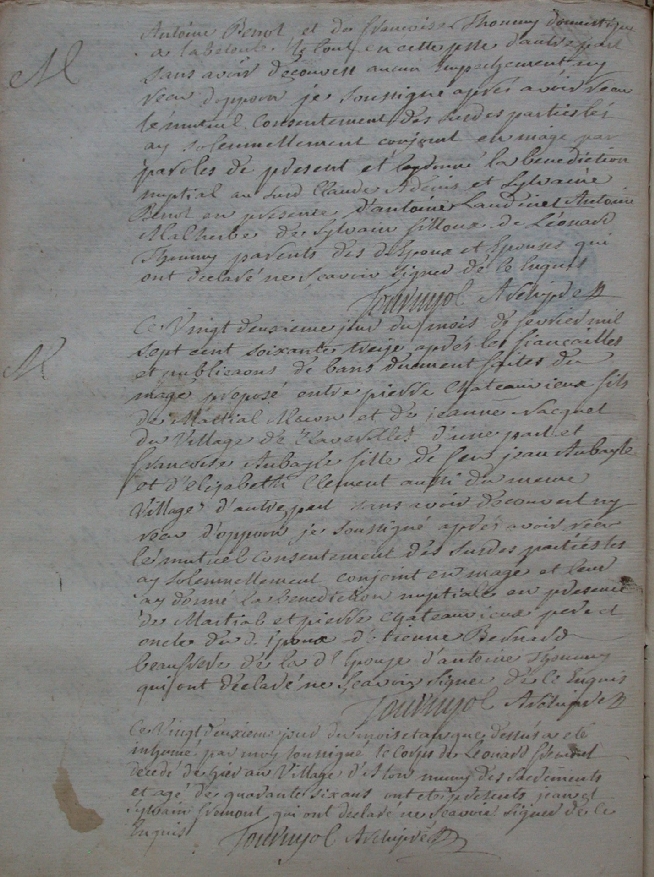 Antoine Benot et de francoise Thoumy domestique
a la le tout en cette psse d'autre part
sans avoir decouvert aucun empechement ny
reçu d'oppon je soussigné après avoir reçu
le mutuel consentement des susdes parties les
ay solemnellement conjoint en mage par
paroles de present et leur donné la benediction
nuptial au susd Claude et Sylvaine
Benot en presence d'antoine Antoine
Malherbe de Sylvain filloux de Léonard
Thoumy parents des d epoux et epouses qui
ont declaré ne scavoir signer de ce enquis
Tournyol Archiprê
M
Ce Vingt deuxieme jour du mois de fevrier mil
sept cent soixante treize après les fiancailles
et publications de bans duement faites du
mage proposé entre pierre Chateauvieux fils
de Martial Macon et de jeanne
du Village de d'une part et
francoise Aubayle fille de feu jean Aubayle
et d'Elizabeth Clement aussi du meme
Village d'autre part sans avoir decouvert ny
reçu d'oppon je soussigné après avoir reçu
le mutuel consentement des susdes parties les
ay solemnellement conjoint en mage et leur
ay donné la benediction nuptiale en presence
de Martial et pierre Chateauvieux pere et
oncle du d. Epoux d'Etienne Bernard
beaufrere de la de Epouse d'antoine Thoumy
qui ont declaré ne scavoir signer de ce Enquis
Tournyol Archiprê
M
Ce Vingt deuxieme jour du mois et an que dessus a eté
inhumé par moy soussigné le Corps de Léonard
decedé d'hier au Village muny des sacrements
et agé de quarante six ans ont eté presents jean et
Sylvain qui ont declaré ne scavoir signer de ce
Enquis Tournyol Archiprê